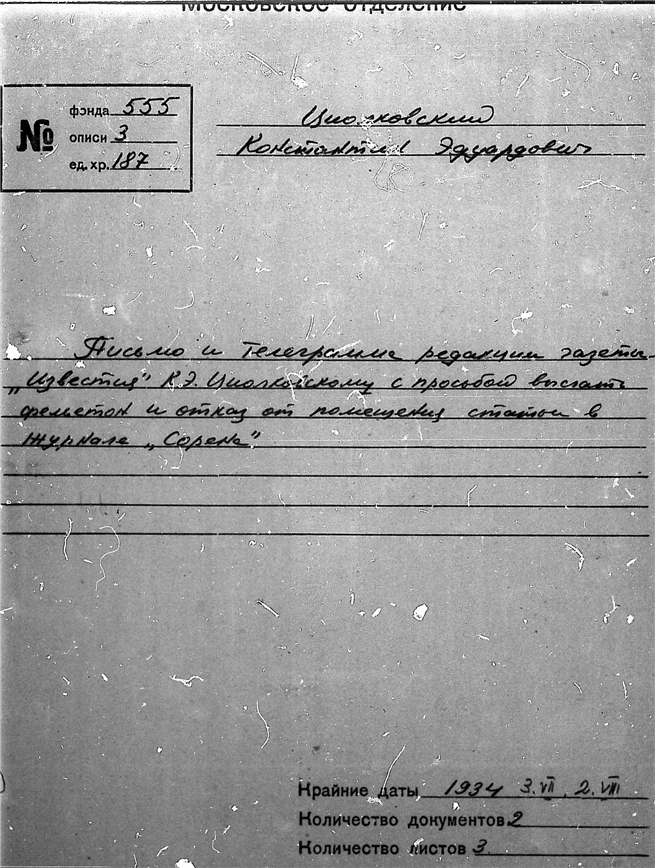 Московское отделение
№
фонда 555
описи 3
ед. хр. 187
Циолковский
Константин Эдуардович
Письмо и телеграмма редакции газеты
„Известия" К.Э. Циолковскому с просьбой выслать
фельетон и отказ от помещения статьи в
журнале „Сорена"
Крайние даты 1934 3.VII, 2.VIII
Количество документов 2
Количество листов 3